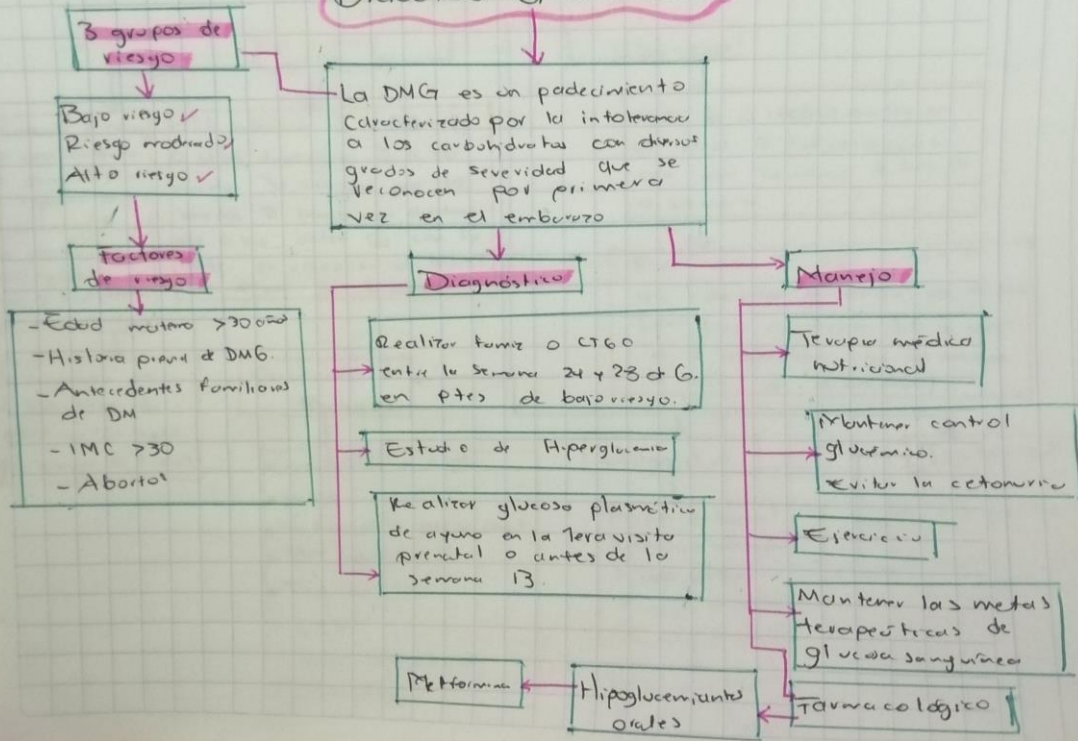 3 grupos de
riesgo
Bajo riesgo ✓
Riesgo moderado
Alto riesgo ✓
Factores
de riesgo
- Edad materna >30 años
- Historia previa d DMG.
- Antecedentes familiares
de DM
- IMC >30
- Abortos
La DMG es un padecimiento
caracterizado por la intolerancia
a los carbohidratos con diversos
grados de severidad que se
reconocen por primera
vez en el embarazo
Diagnóstico
Realizar tamiz o CTGO
entre la semana 24 y 28 d G.
en ptes de bajo riesgo.
Estudio de Hiperglucemia
Realizar glucosa plasmática
de ayuno en la 1era visita
prenatal o antes de la
semana 13.
Manejo
Terapia médica
nutricional
Mantener control
glucémico.
Evitar la cetonuria
Ejercicio
Mantener las metas
terapeúticas de
glucosa sanguínea
Farmacológico
Hipoglucemiantes
orales
Metformina